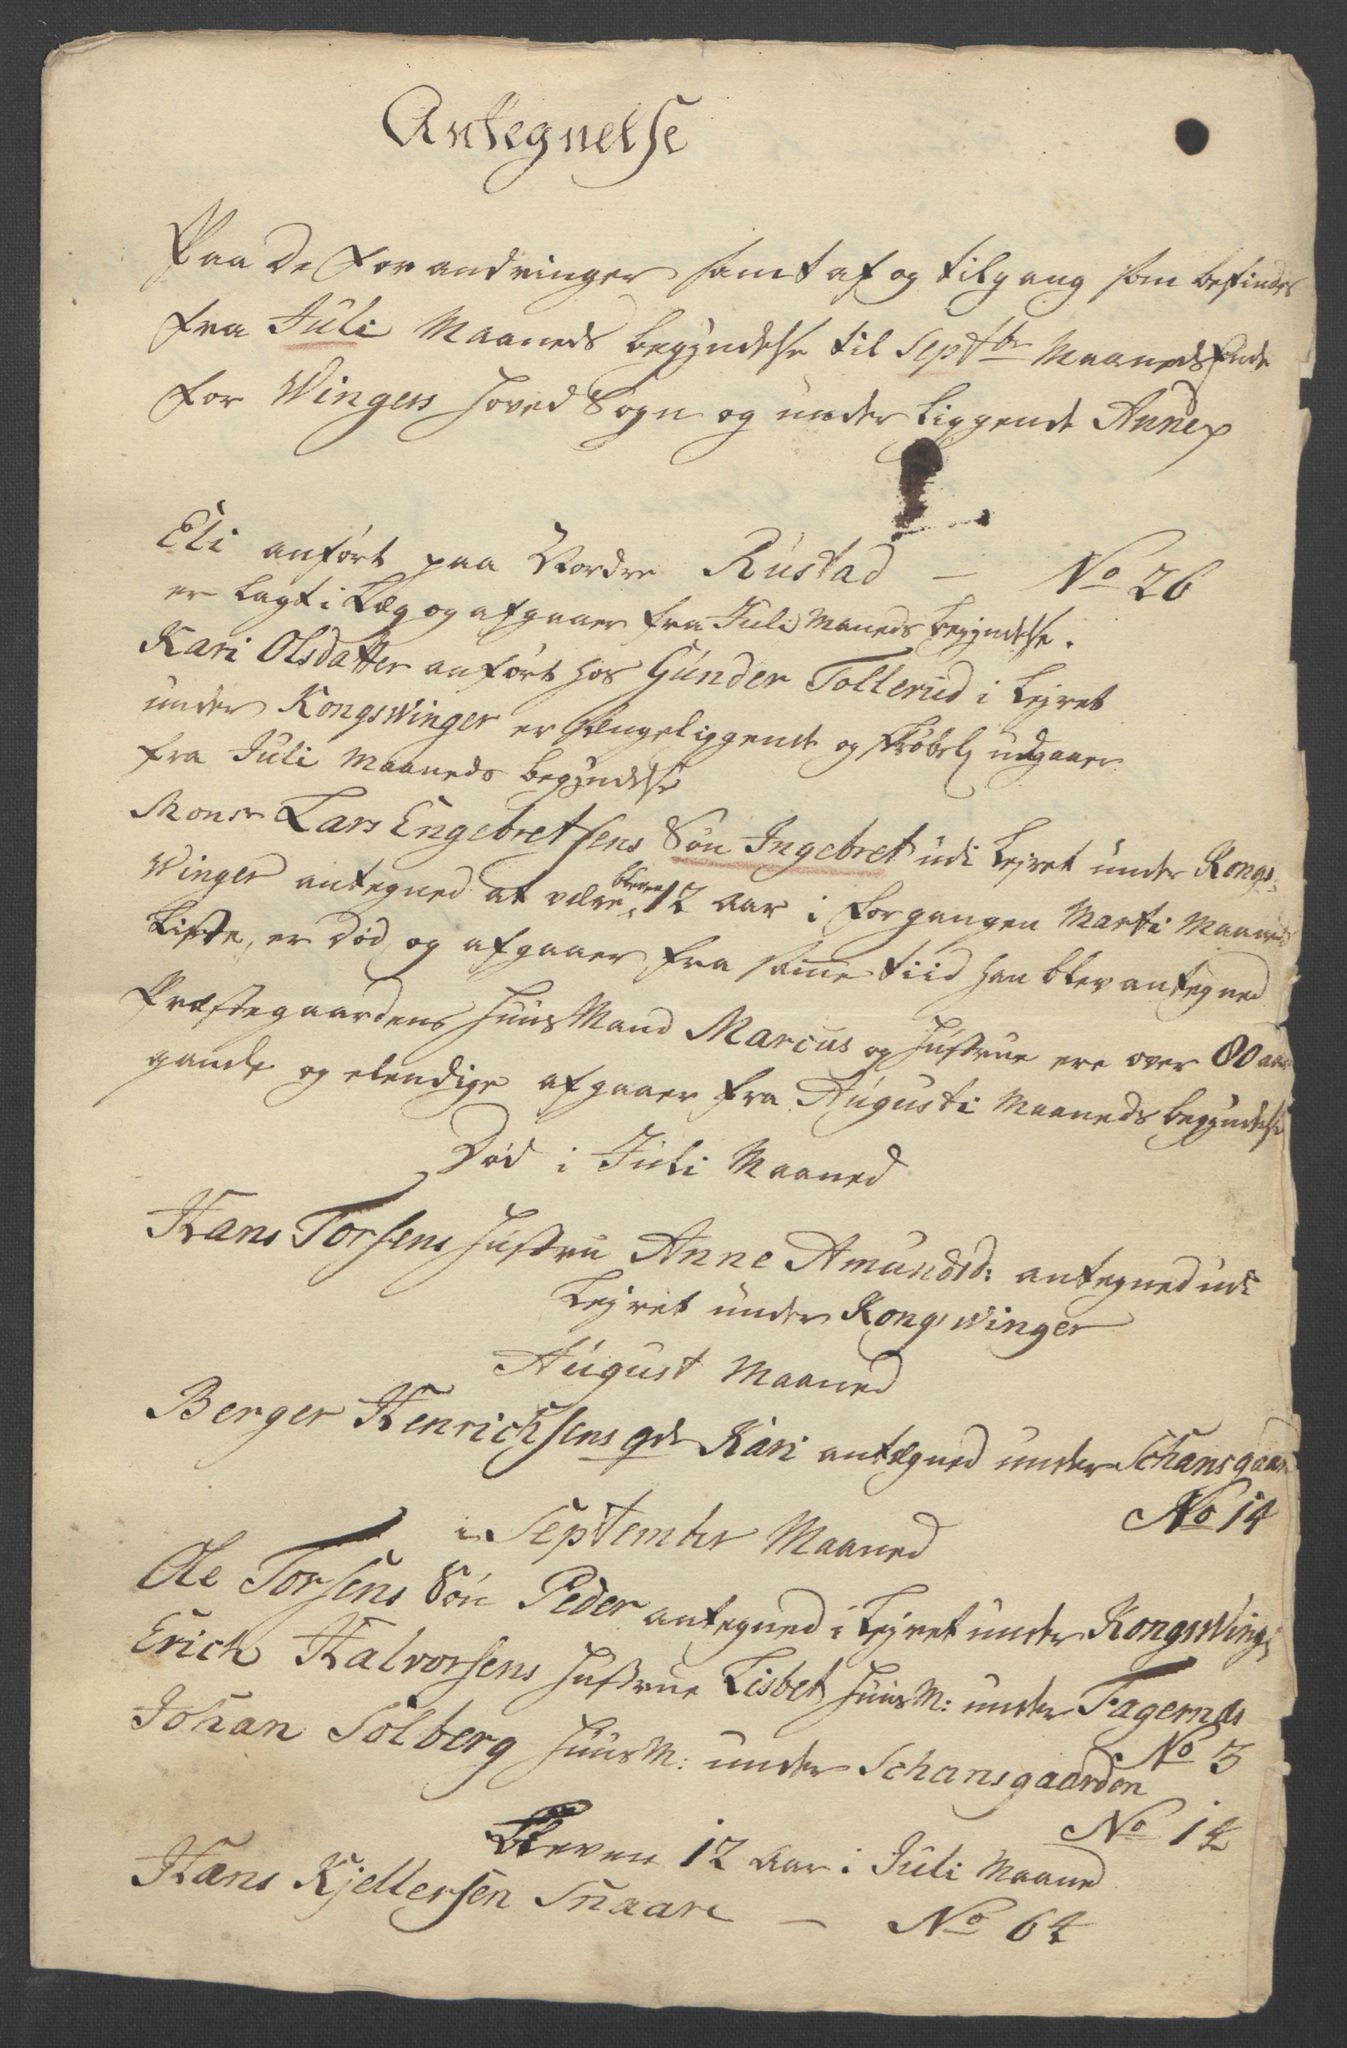 Antegnelse
Paa De forandringer samt af og tilgang som befindes
fra Juli Maaneds begyndelse til Septbr Maaneds Ende
for Wingers Hoved Sogn og underliggende Annex
Eli anført paa Nordre Rustad — No 26
er lagt i Læg og afgaaer fra Juli Maneds begyndelse.
Kari Olsdatter anført hos Gunder Tollerud i Lejret
under Kongswinger er sængeliggende og skrøbel: udgaaer
fra Juli Maaneds begyndelse
Monsr Lars Engebretsens Søn Ingebret udi Lejret under Kongs-
Winger antegned at være bleven 12 Aar i forgangen Marti Maaneds
Liste, er Død, og afgaaer fra samme tiid han blev antegned
Præstegaardens Huus Mand Marcus og Hustrue ere over 80 aar
gamle og elendige afgaaer fra Augusti Maaneds begyndelse
Død i Juli Maaned
Hans Torsens Hustru Anne Amundsd: antegned udi
Lejret under Kongswinger
August Maaned
Berger Henrichsens gde Kari antegned under Schansgaar
No 14
i September Maaned
Ole Torsens Søn Peder antegned i Lejret under KongsWing:
Erich Halvorsens Hustrue Lisbet HuusM: under Fagernæs
No 3
Johan Solberg HuusM: under Schansgaarden
No 14
Bleven 12 Aar i Juli Maaned
Hans Kjellersen Snaare — No 64